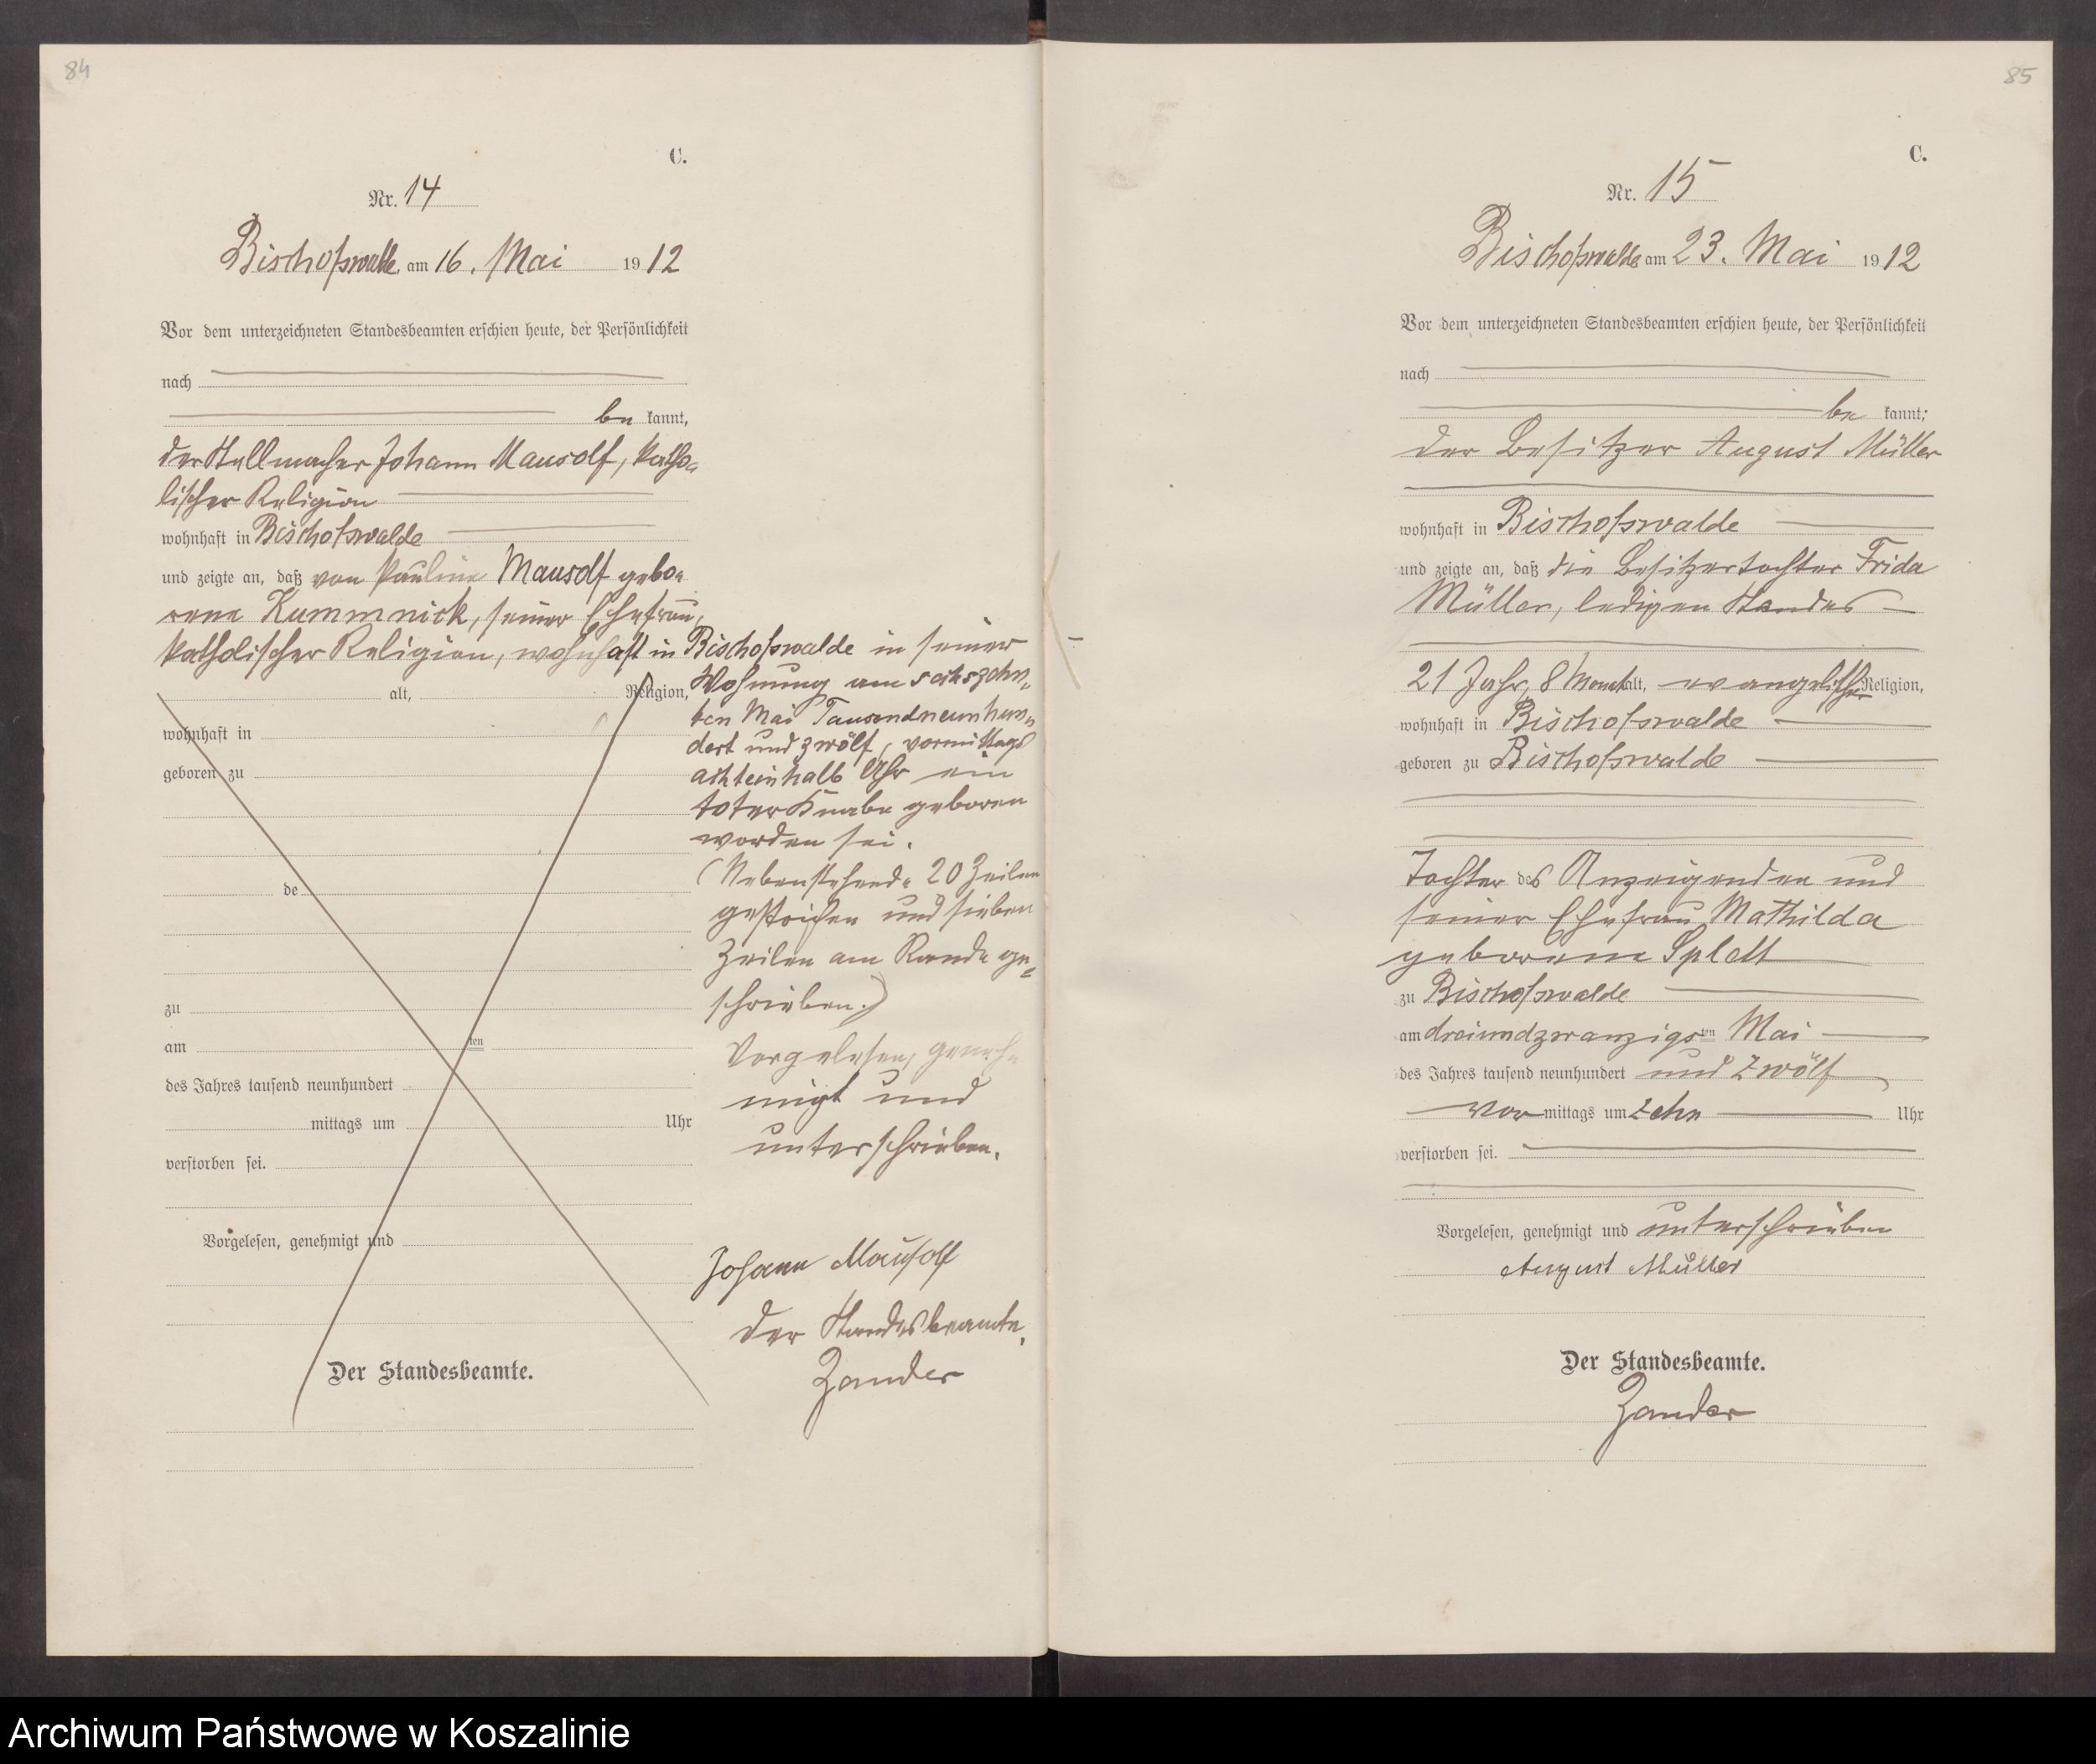 84
C.
Nr. 14
Bischofswalde am 16. Mai 1912
Vor dem unterzeichneten Standesbeamten erschien heute, der Persönlichkeit
nach
be kannt,
der Stellmacher Johann Mausolf, katho„
lischer Religion
wohnhaft in Bischofswalde
und zeigte an, daß von Pauline Mausolf gebo„
rene Kummnick, seiner Ehefrau,
katholischer Religion, wohnhaft in Bischofswalde in seiner
alt, Religion, Wohnung am sechszehn„
ten Mai Tausendneunhun„
wohnhaft in dert und zwölf, vormittags
geboren zu achteinhalb Uhr ein
toter Knabe geboren
worden sei.
de (Nebenstehende 20 Zeilen
gestrichen und sieben
Zeilen am Rande ge„
zu schrieben.)
am ten Vorgelesen, geneh
des Jahres tausend neunhundert migt und
mittags um Uhr unterschrieben.
verstorben sei.
Vorgelesen, genehmigt und
Johann Mausolf
Der Standesbeamte.
Der Standesbeamte.
Zander
85
C.
Nr. 15
Bischofswalde am 23. Mai 1912
Vor dem unterzeichneten Standesbeamten erschien heute, der Persönlichkeit
nach
be kannt,
der Besitzer August Müller
wohnhaft in Bischofswalde
und zeigte an, daß die Besitzertochter Frida
Müller, ledigen Standes
21 Jahr, 8 Monat alt, evangelischer Religion,
wohnhaft in Bischofswalde
geboren zu Bischofswalde
Tochter des Anzeigenden und
seiner Ehefrau Mathilda
geborene Splett
zu Bischofswalde
am dreiundzwanzigsten Mai
des Jahres tausend neunhundert und zwölf
vor mittags um zehn Uhr
verstorben sei.
Vorgelesen, genehmigt und unterschrieben
August Müller
Der Standesbeamte.
Zander
Archiwum Państwowe w Koszalinie